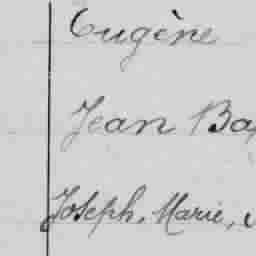 Eugène
Jean Ba
Joseph, Marie,